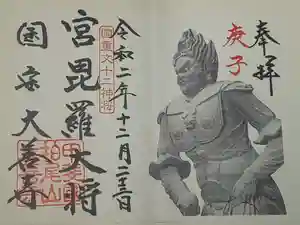 奉拝
庚子
令和二年十二月二十三日
国重文十二神将
宮毘羅大将
国宗大善寺
柏尾山